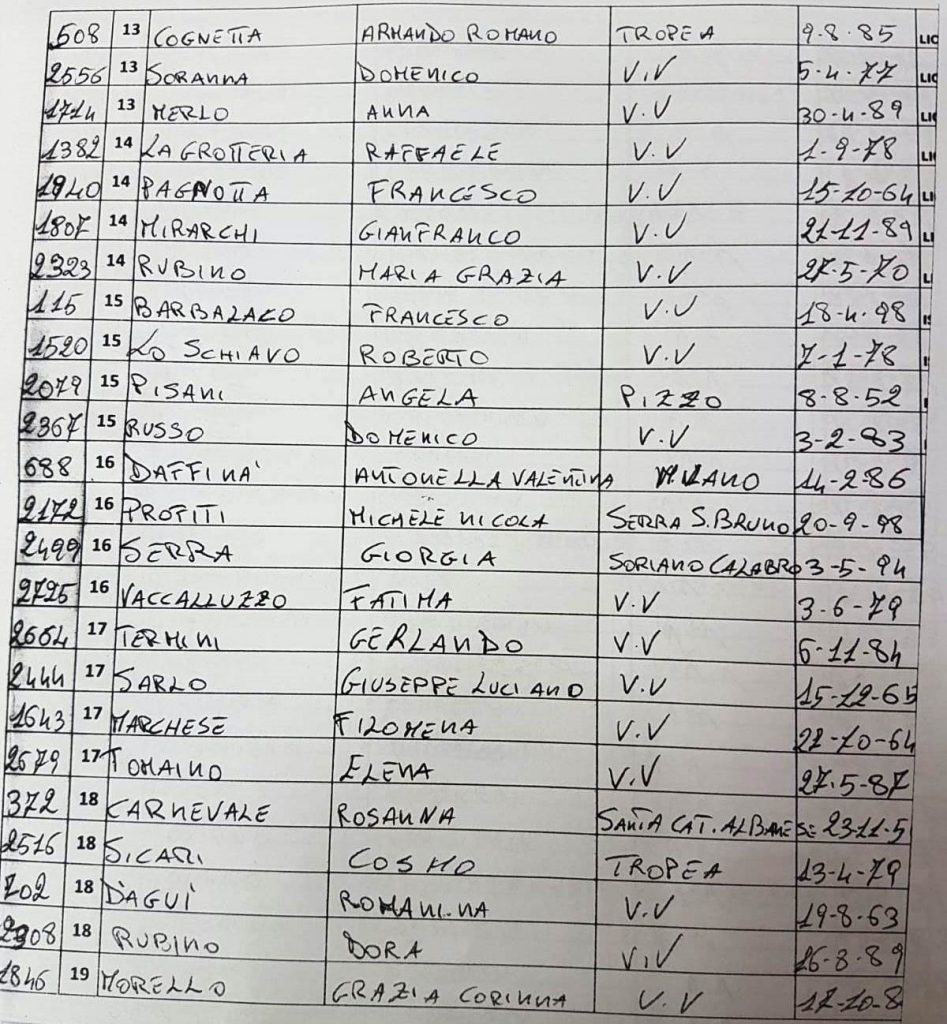 508 13 COGNETTA ARMANDO ROMANO TROPEA 9-8-85
2556 13 SORANNA DOMENICO V.V 5-4-77
1714 13 MERLO ANNA V.V 30-4-89
1382 14 LA GROTTERIA RAFFAELE V.V 1-9-78
1940 14 PAGNOTTA FRANCESCO V.V 15-10-64
1807 14 MIRARCHI GIANFRANCO V.V 21-11-89
2323 14 RUBINO MARIA GRAZIA V.V 27-5-70
115 15 BARBALACO FRANCESCO V.V 18-4-98
1520 15 LO SCHIAVO ROBERTO V.V 7-1-78
2079 15 PISANI ANGELA PIZZO 8-8-52
2367 15 RUSSO DOMENICO V.V 3-2-83
688 16 DAFFINA' ANTONELLA VALENTINA MILANO 14-2-86
2172 16 PROFITI MICHELE NICOLA SERRA S.BRUNO 20-9-98
2499 16 SERRA GIORGIA SORIANO CALABRO 3-5-94
2725 16 VACCALLUZZO FATIMA V.V 3-6-79
2664 17 TERMINI GERLANDO V.V 6-11-84
2444 17 SARLO GIUSEPPE LUCIANO V.V 15-12-65
1643 17 MARCHESE FILOMENA V.V 22-10-64
2679 17 TOMAINO ELENA V.V 27-5-87
372 18 CARNEVALE ROSANNA SANTA CAT. ALBANESE 23-11-5
2516 18 SICARI COSMO TROPEA 13-4-79
702 18 D'AGUI' ROMANINA V.V 19-8-63
18 RUBINO DORA V.V 26-8-89
1846 19 MORELLO GRAZIA CORINNA V.V 17-10-8